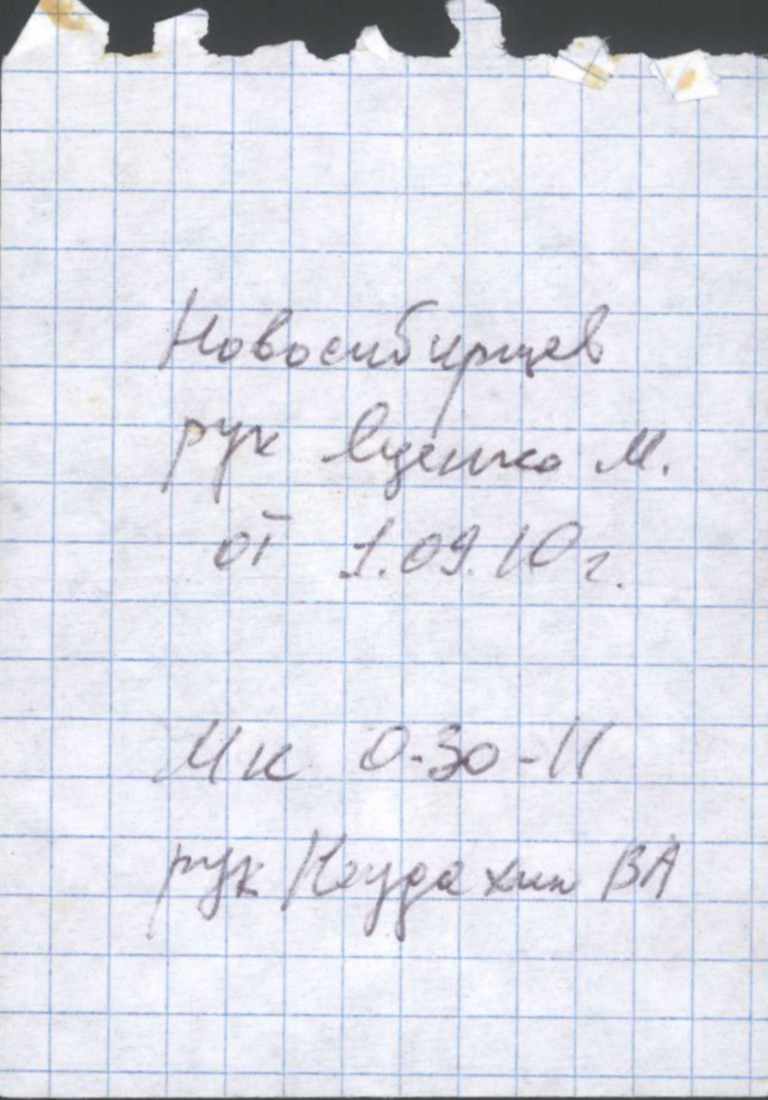 Новосибирцев
рук Яценко М.
от 1.09.10 г.
МК 0-30-11
рук Неудахин ВА